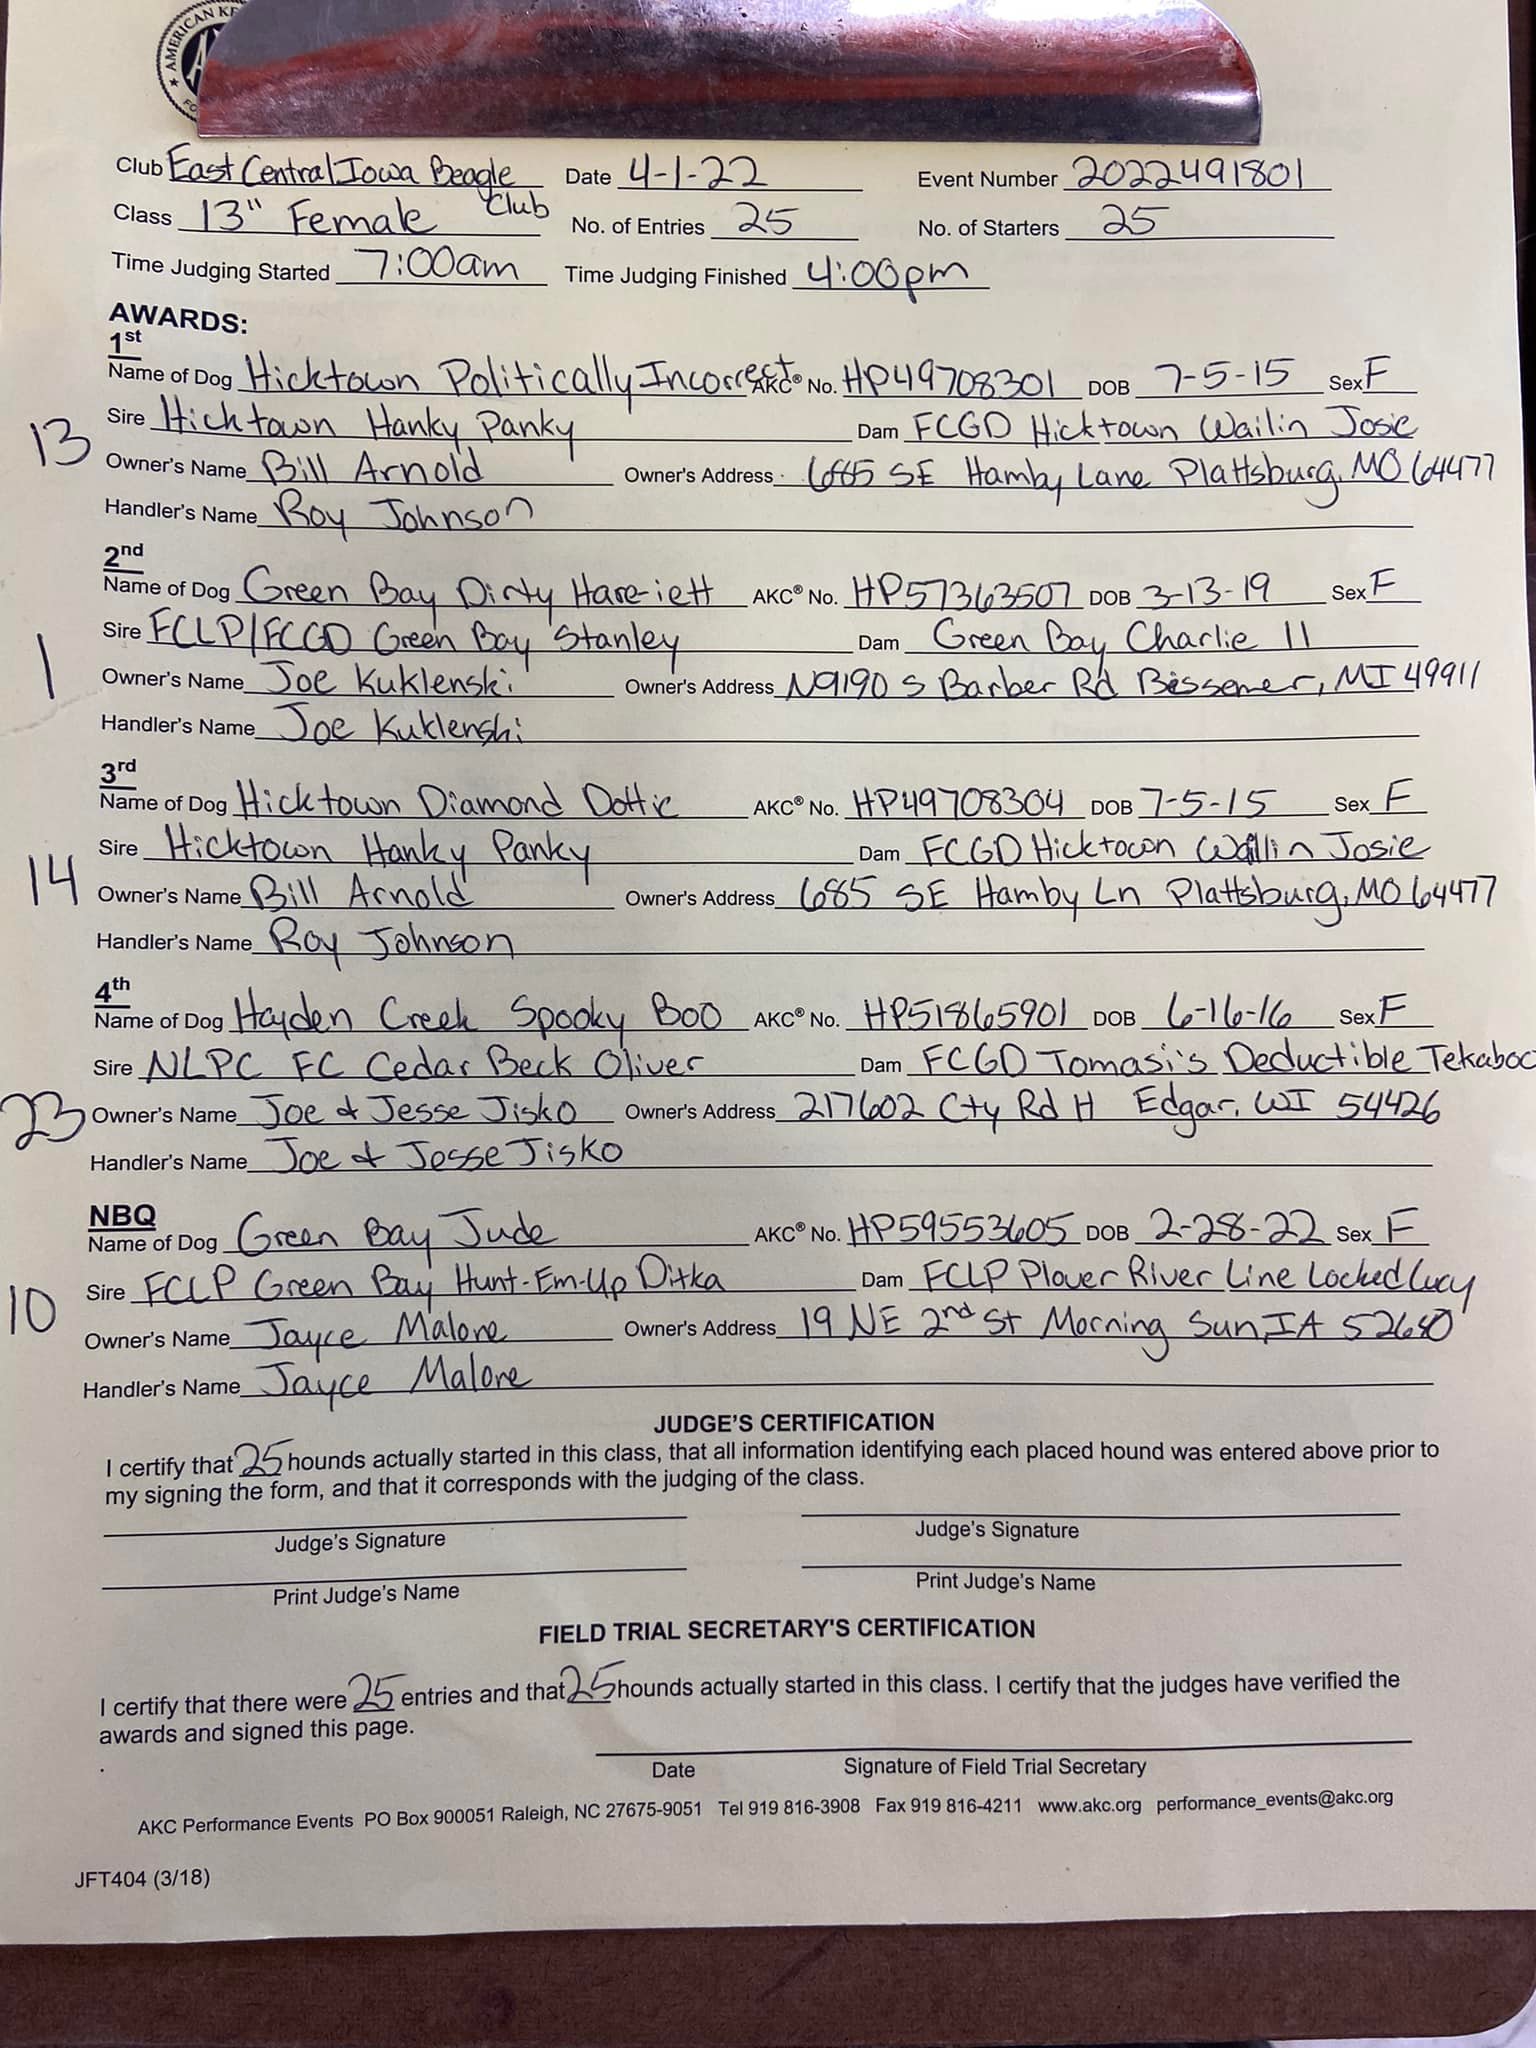 AMERICAN KE
Club East Central Iowa Beagle Club Date 4-1-22 Event Number 2022491801
Class 13" Female No. of Entries 25 No. of Starters 25
Time Judging Started 7:00am Time Judging Finished 4:00pm
AWARDS:
1st
Name of Dog Hicktown Politically Incorrect AKC® No. HP49708301 DOB 7-5-15 Sex F
Sire Hicktown Hanky Panky Dam FCGD Hicktown Wailin Josie
13
Owner's Name Bill Arnold Owner's Address 685 SE Hamby Lane Plattsburg, MO 64477
Handler's Name Roy Johnson
2nd
Name of Dog Green Bay Dirty Hare-iett AKC® No. HP57363507 DOB 3-13-19 Sex F
Sire FCLP/FCGD Green Bay Stanley Dam Green Bay Charlie 11
1
Owner's Name Joe Kuklenski Owner's Address N9190 S Barber Rd Bessemer, MI 49911
Handler's Name Joe Kuklenski
3rd
Name of Dog Hicktown Diamond Dottie AKC® No. HP49708304 DOB 7-5-15 Sex F
Sire Hicktown Hanky Panky Dam FCGD Hicktown Wailin Josie
14
Owner's Name Bill Arnold Owner's Address 685 SE Hamby Ln Plattsburg, MO 64477
Handler's Name Roy Johnson
4th
Name of Dog Hayden Creek Spooky Boo AKC® No. HP51865901 DOB 6-16-16 Sex F
Sire NLPC FC Cedar Beck Oliver Dam FCGD Tomasi's Deductible Tekaboo
23
Owner's Name Joe & Jesse Jisko Owner's Address 217602 Cty Rd H Edgar, WI 54426
Handler's Name Joe & Jesse Jisko
NBQ
Name of Dog Green Bay Jude AKC® No. HP59553605 DOB 2-28-22 Sex F
Sire FCLP Green Bay Hunt-Em-Up Ditka Dam FCLP Plover River Line Locked Lucy
10
Owner's Name Jayce Malone Owner's Address 19 NE 2nd St Morning Sun, IA 52640
Handler's Name Jayce Malone
JUDGE'S CERTIFICATION
I certify that 25 hounds actually started in this class, that all information identifying each placed hound was entered above prior to
my signing the form, and that it corresponds with the judging of the class.
Judge's Signature Judge's Signature
Print Judge's Name Print Judge's Name
FIELD TRIAL SECRETARY'S CERTIFICATION
I certify that there were 25 entries and that 25 hounds actually started in this class. I certify that the judges have verified the
awards and signed this page.
Date Signature of Field Trial Secretary
AKC Performance Events PO Box 900051 Raleigh, NC 27675-9051 Tel 919 816-3908 Fax 919 816-4211 www.akc.org performance_events@akc.org
JFT404 (3/18)